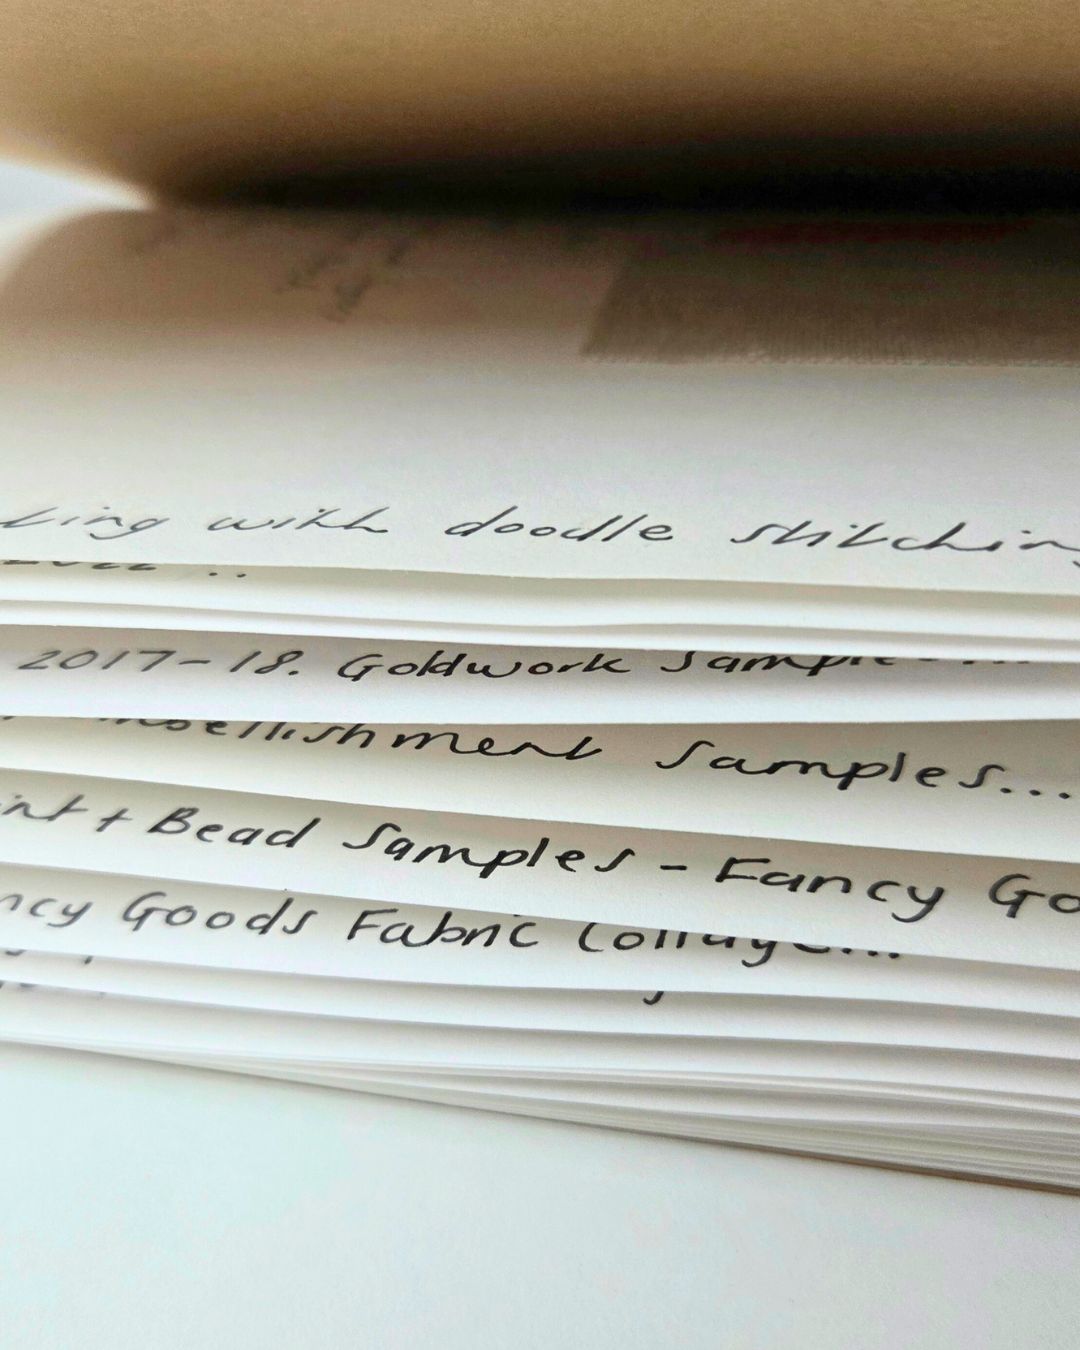 with doodle stitching
2022 ..
2017-18. Goldwork Samples...
Embellishment Samples...
+ Bead Samples - Fancy Go
Goods Fabric Collage...